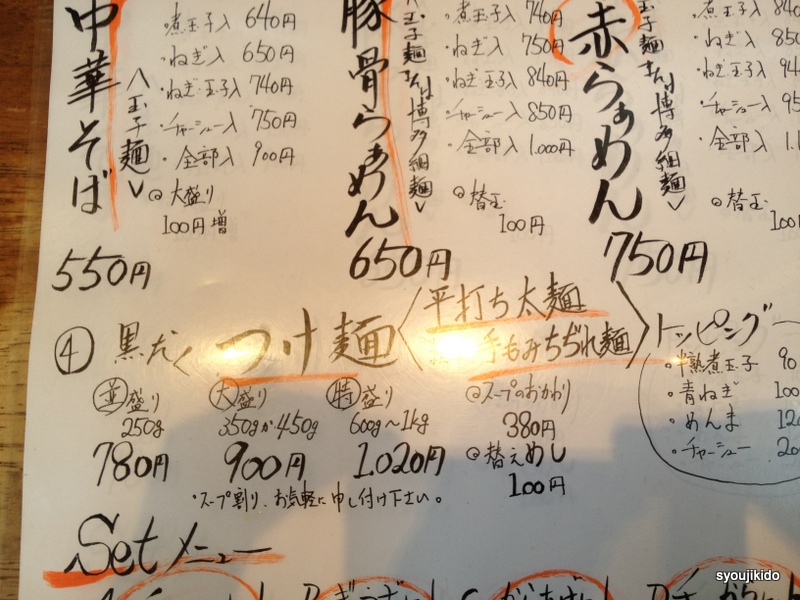 中華そば
煮玉子入 640円
・ねぎ入 650円
・ねぎ・玉子入 740円
・チャーシュー入 750円
・全部入 900円
〈玉子麺〉
◎大盛り
100円増
550円
豚骨らぁめん
煮玉子入 740円
・ねぎ入 750円
・ねぎ・玉子入 840円
・チャーシュー入 850円
・全部入 1,000円
玉子麺または博多細麺〉
◎替玉
100円
650円
赤らぁめん
煮玉子入 840
・ねぎ入 850
・ねぎ・玉子入
・チャーシュー入
・全部入
玉子麺または博多細麺〉
◎替玉
100
750円
④ 黒だく つけ麺〈平打ち太麺
手もみちぢれ麺〉
並盛り
250g
780円
大盛り
350gか450g
900円
特盛り
600g〜1kg
1,020円
◎スープのおかわり
380円
◎替えめし
100円
・スープ割り、お気軽に申し付け下さい。
トッピング
・半熟煮玉子 90
・青ねぎ 100
・めんま
・チャーシュー
Setメニュー
syoujikido